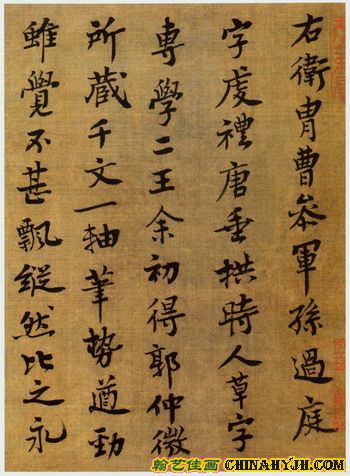 右衛胄曹參軍孫過庭
字虔禮唐垂拱時人草字
專學二王余初得郭仲微
所藏千文一軸筆勢遒勁
雖覺不甚飄縱然比之永
翰艺佳画 CHINAHYJH.COM